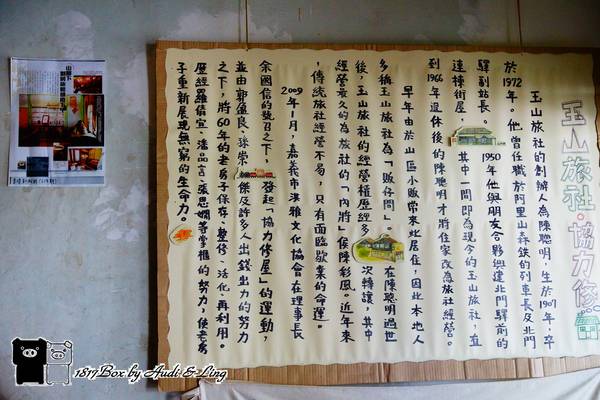 玉山旅社·協力修
玉山旅社的創辦人為陳聰明,生於1901年,卒
於1972年。他曾任職於阿里山森鐵的列車長及北門
驛副站長。1950年他與朋友合夥興建北門驛前的
連棟街屋,其中一間即為現今的玉山旅社,直
到1966年退休後的陳聰明才將住家改為旅社經營。
早年由於山區小販常來此居住,因此本地人
多稱玉山旅社為「販仔間」。在陳聰明過世
後,玉山旅社的經營權歷經多次轉讓,其中
經營最久的為旅社的「內將」侯陳彩鳳。近年來
,傳統旅社經營不易,只有面臨歇業的命運。
2009年1月,嘉義市洪雅文化協會在理事長
余國信的號召之下,發起「協力修屋」的運動,
並由郭盈良、孫崇傑及許多人出錢出力的努力
之下,將60年的老房子保存、整修、活化、再利用。
歷經羅倩宜、潘品言、張思嫺等掌櫃的努力,使老房
子重新展現無窮的生命力。
1817Box by Audi & Ling